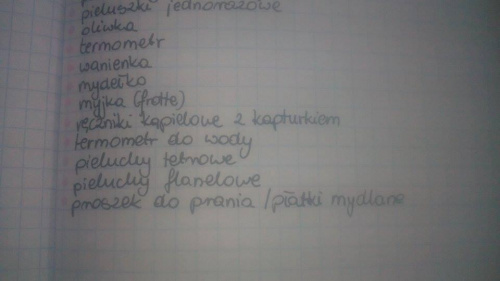 pieluszki jednorazowe
oliwka
termometr
wanienka
mydełko
myjka (frotte)
ręczniki kąpielowe z kapturkiem
termometr do wody
pieluchy tetrowe
pieluchy flanelowe
proszek do prania / płatki mydlane